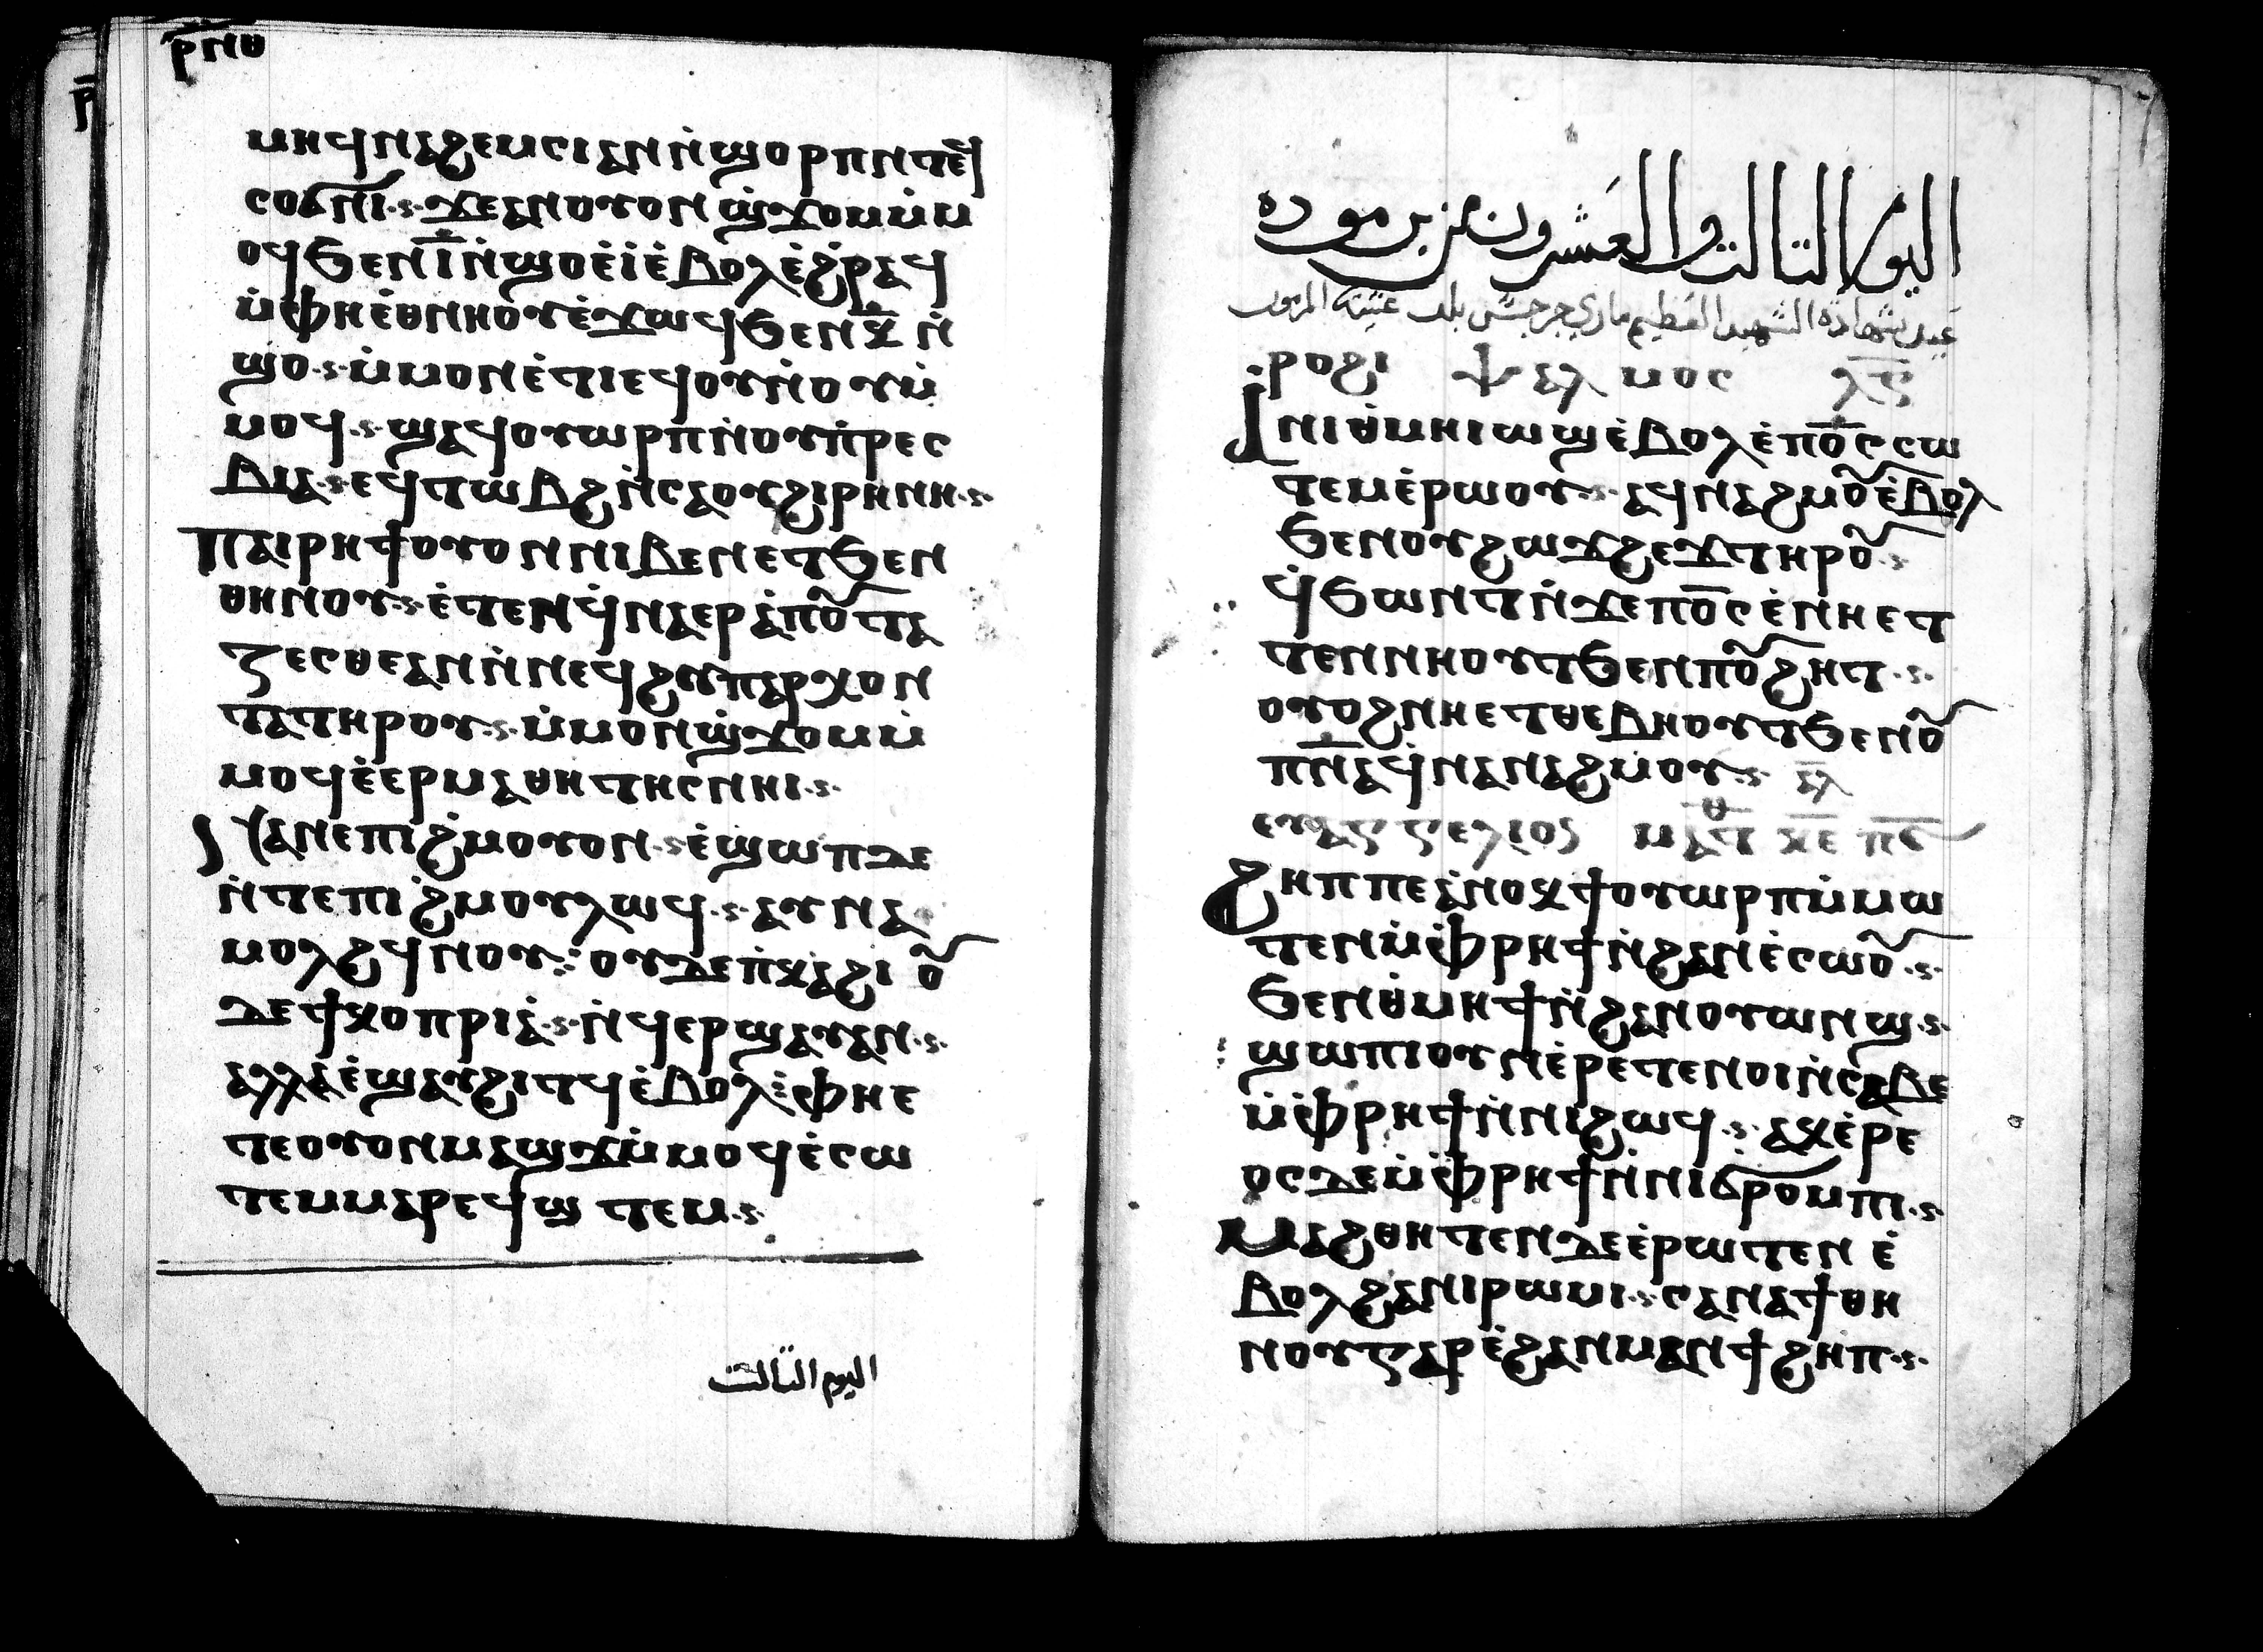 ⲣ̅ⲛ̅ⲑ̅
ⲙⲏϥⲛⲁϩⲉⲙⲥⲓⲁⲛⲛ̀ϣⲟⲣⲡⲛⲧⲉϥ
ⲥⲟϭⲛⲓ·ⲋ·ϫⲉⲁⲛⲟⲩⲟⲛϣ̀ϫⲟⲙⲙ̀ⲙ
ⲟϥϧⲉⲛⲓ̅ⲛ̀ϣⲟⲉ̀ⲓ̀ⲉ̀ⲃⲟⲗⲉ̀ϩ̀ⲣⲁϥ
ⲙ̀ⲫⲏⲉ̀ⲑⲛⲏⲟⲩⲉ̀ϫⲱϥϧⲉⲛⲕ̅ⲛ̀
ϣⲟ·ⲋ·ⲙ̀ⲙⲟⲛⲉ̀ⲧⲓⲉϥⲟⲩⲛ̀ⲟⲩⲙ̀
ⲙⲟϥ·ⲋ·ϣⲁϥⲟⲩⲱⲣⲡⲛ̀ⲟⲩⲡ̀ⲣⲉⲥ
ⲃⲓⲁ·ⲋ·ⲉϥⲧⲱⲃϩⲛ̀ⲥⲁⲟⲩϩⲓⲣⲏⲛⲏ·ⲋ·
ⲡⲁⲓⲣⲏϯⲟⲩⲟⲛⲛⲓⲃⲉⲛⲉⲧϧⲉⲛ
ⲑⲏⲛⲟⲩ·ⲋ·ⲉ̀ⲧⲉⲛϥ̀ⲛⲁⲉⲣⲁ̀ⲡⲟⲩⲧⲁ
ⲍⲉⲥⲑⲉⲁⲛⲛ̀ⲛⲉϥϩⲩⲡⲁⲣⲭⲟⲛ
ⲧⲁⲧⲏⲣⲟⲩ·ⲋ·ⲙ̀ⲙⲟⲛϣ̀ϫⲟⲙⲙ̀
ⲙⲟϥⲉ̀ⲉⲣⲙⲁⲑⲏⲧⲏⲥⲛⲏⲓ·ⲋ·
ⲛⲁⲛⲉⲡⲓϩ̀ⲙⲟⲩⲟⲛ·ⲋ·ⲉ̀ϣⲱⲡⲇⲉ
ⲛ̀ⲧⲉⲡⲓϩ̀ⲙⲟⲩⲗⲱϥ·ⲋ·ⲁⲩⲛⲁ
ⲙⲟⲗϩϥⲛⲟⲩ·ⲋ·ⲟⲩⲇⲉⲡ̀ⲕⲁϩⲓ ⲟⲩ
ⲇⲉϯⲕⲟⲡⲣⲓⲁ·ⲋ·ⲛ̀ϥⲉⲣϣⲁⲩⲁⲛ·ⲋ·
ⲁⲗⲗⲁⲉ̀ϣⲁⲩϩⲓⲧϥⲉ̀ⲃⲟⲗ·ⲋ·ⲫⲏⲉ
ⲧⲉⲟⲩⲟⲛⲙⲁϣϫⲙ̀ⲙⲟϥⲉ̀ⲥⲱ
ⲧⲉⲙⲙⲁⲣⲉϥⲥⲱ ⲧⲉⲙ·ⲋ·
اليوم الثالث
اليوم الثالث والعشرون من برموده
عيد شهادة الشهيد العظيم ماري جرجس بلد
ⲣⲟϩⲓ ⲯⲁⲗⲙⲟⲥ ⲗ̅ⲅ̅
ⲁⲛⲓⲑ̀ⲙⲏⲓⲱϣⲉ̀ⲃⲟⲗⲉ̀ⲡⲟ̅ⲥ̅ⲥⲱ
ⲧⲉⲙⲉ̀ⲣⲱⲟⲩ·ⲋ·ⲁϥⲛⲁϩⲙⲟⲩⲉ̀ⲃⲟⲗ
ϧⲉⲛⲟⲩϩⲱϫϩⲉϫⲧⲏⲣⲟⲩ·ⲋ·
ϥ̀ϧⲱⲛⲧⲛ̀ϫⲉⲡⲟ̅ⲥ̅ⲉ̀ⲛⲏⲉⲧ
ⲧⲉⲛⲛⲏⲟⲩⲧϧⲉⲛⲡⲟⲩϩⲏⲧ·ⲋ·
ⲟⲩⲟϩⲛⲏⲉⲧⲑⲉⲃⲏⲟⲩⲧϧⲉⲛⲟⲩ
ⲡ̅ⲛ̅ⲁϥ̀ⲛⲁⲛⲁϩⲙⲟⲩ·ⲋ· ⲁⲗ
ⲉⲩⲁⲅⲅⲉⲗⲓⲟⲥ ⲙⲁⲧⲑ ⲕ̅ⲉ̅ ⲡ̅ⲋ̅
ϩⲏⲡⲡⲉⲁ̀ⲛⲟⲕϯⲟⲩⲱⲣⲡⲙ̀ⲙⲱ
ⲧⲉⲛⲙ̀ⲫ̀ⲣⲏϯⲛ̀ϩⲁⲛⲉ̀ⲥⲱⲟⲩ·ⲋ·
ϧⲉⲛⲑ̀ⲙⲏϯⲛ̀ϩⲁⲛⲟⲩⲱⲛϣ·ⲋ·
ϣⲱⲡⲓⲟⲩⲛⲉ̀ⲣⲉⲧⲉⲛⲟⲓⲛ̀ⲥⲁⲃⲉ
ⲙ̀ⲫ̀ⲣⲏϯⲛ̀ⲛⲓϩⲱϥ·ⲋ·ⲁⲕⲉ̀ⲣⲉ
ⲟⲥⲇⲉⲙ̀ⲫ̀ⲣⲏϯⲛ̀ⲛⲓϭⲣⲟⲙⲡⲓ·ⲋ·
ⲙⲁϩⲑⲏⲧⲉⲛⲇⲉⲉ̀ⲣⲱⲧⲉⲛ ⲉ̀
ⲃⲟⲗϩⲁⲛⲓⲣⲱⲙⲓ·ⲋ·ⲥⲁⲛⲁϯⲑⲏ
ⲛⲟⲩⲅⲁⲣⲉ̀ϩⲁⲛⲙⲁⲛϯϩⲏⲡ·ⲋ·